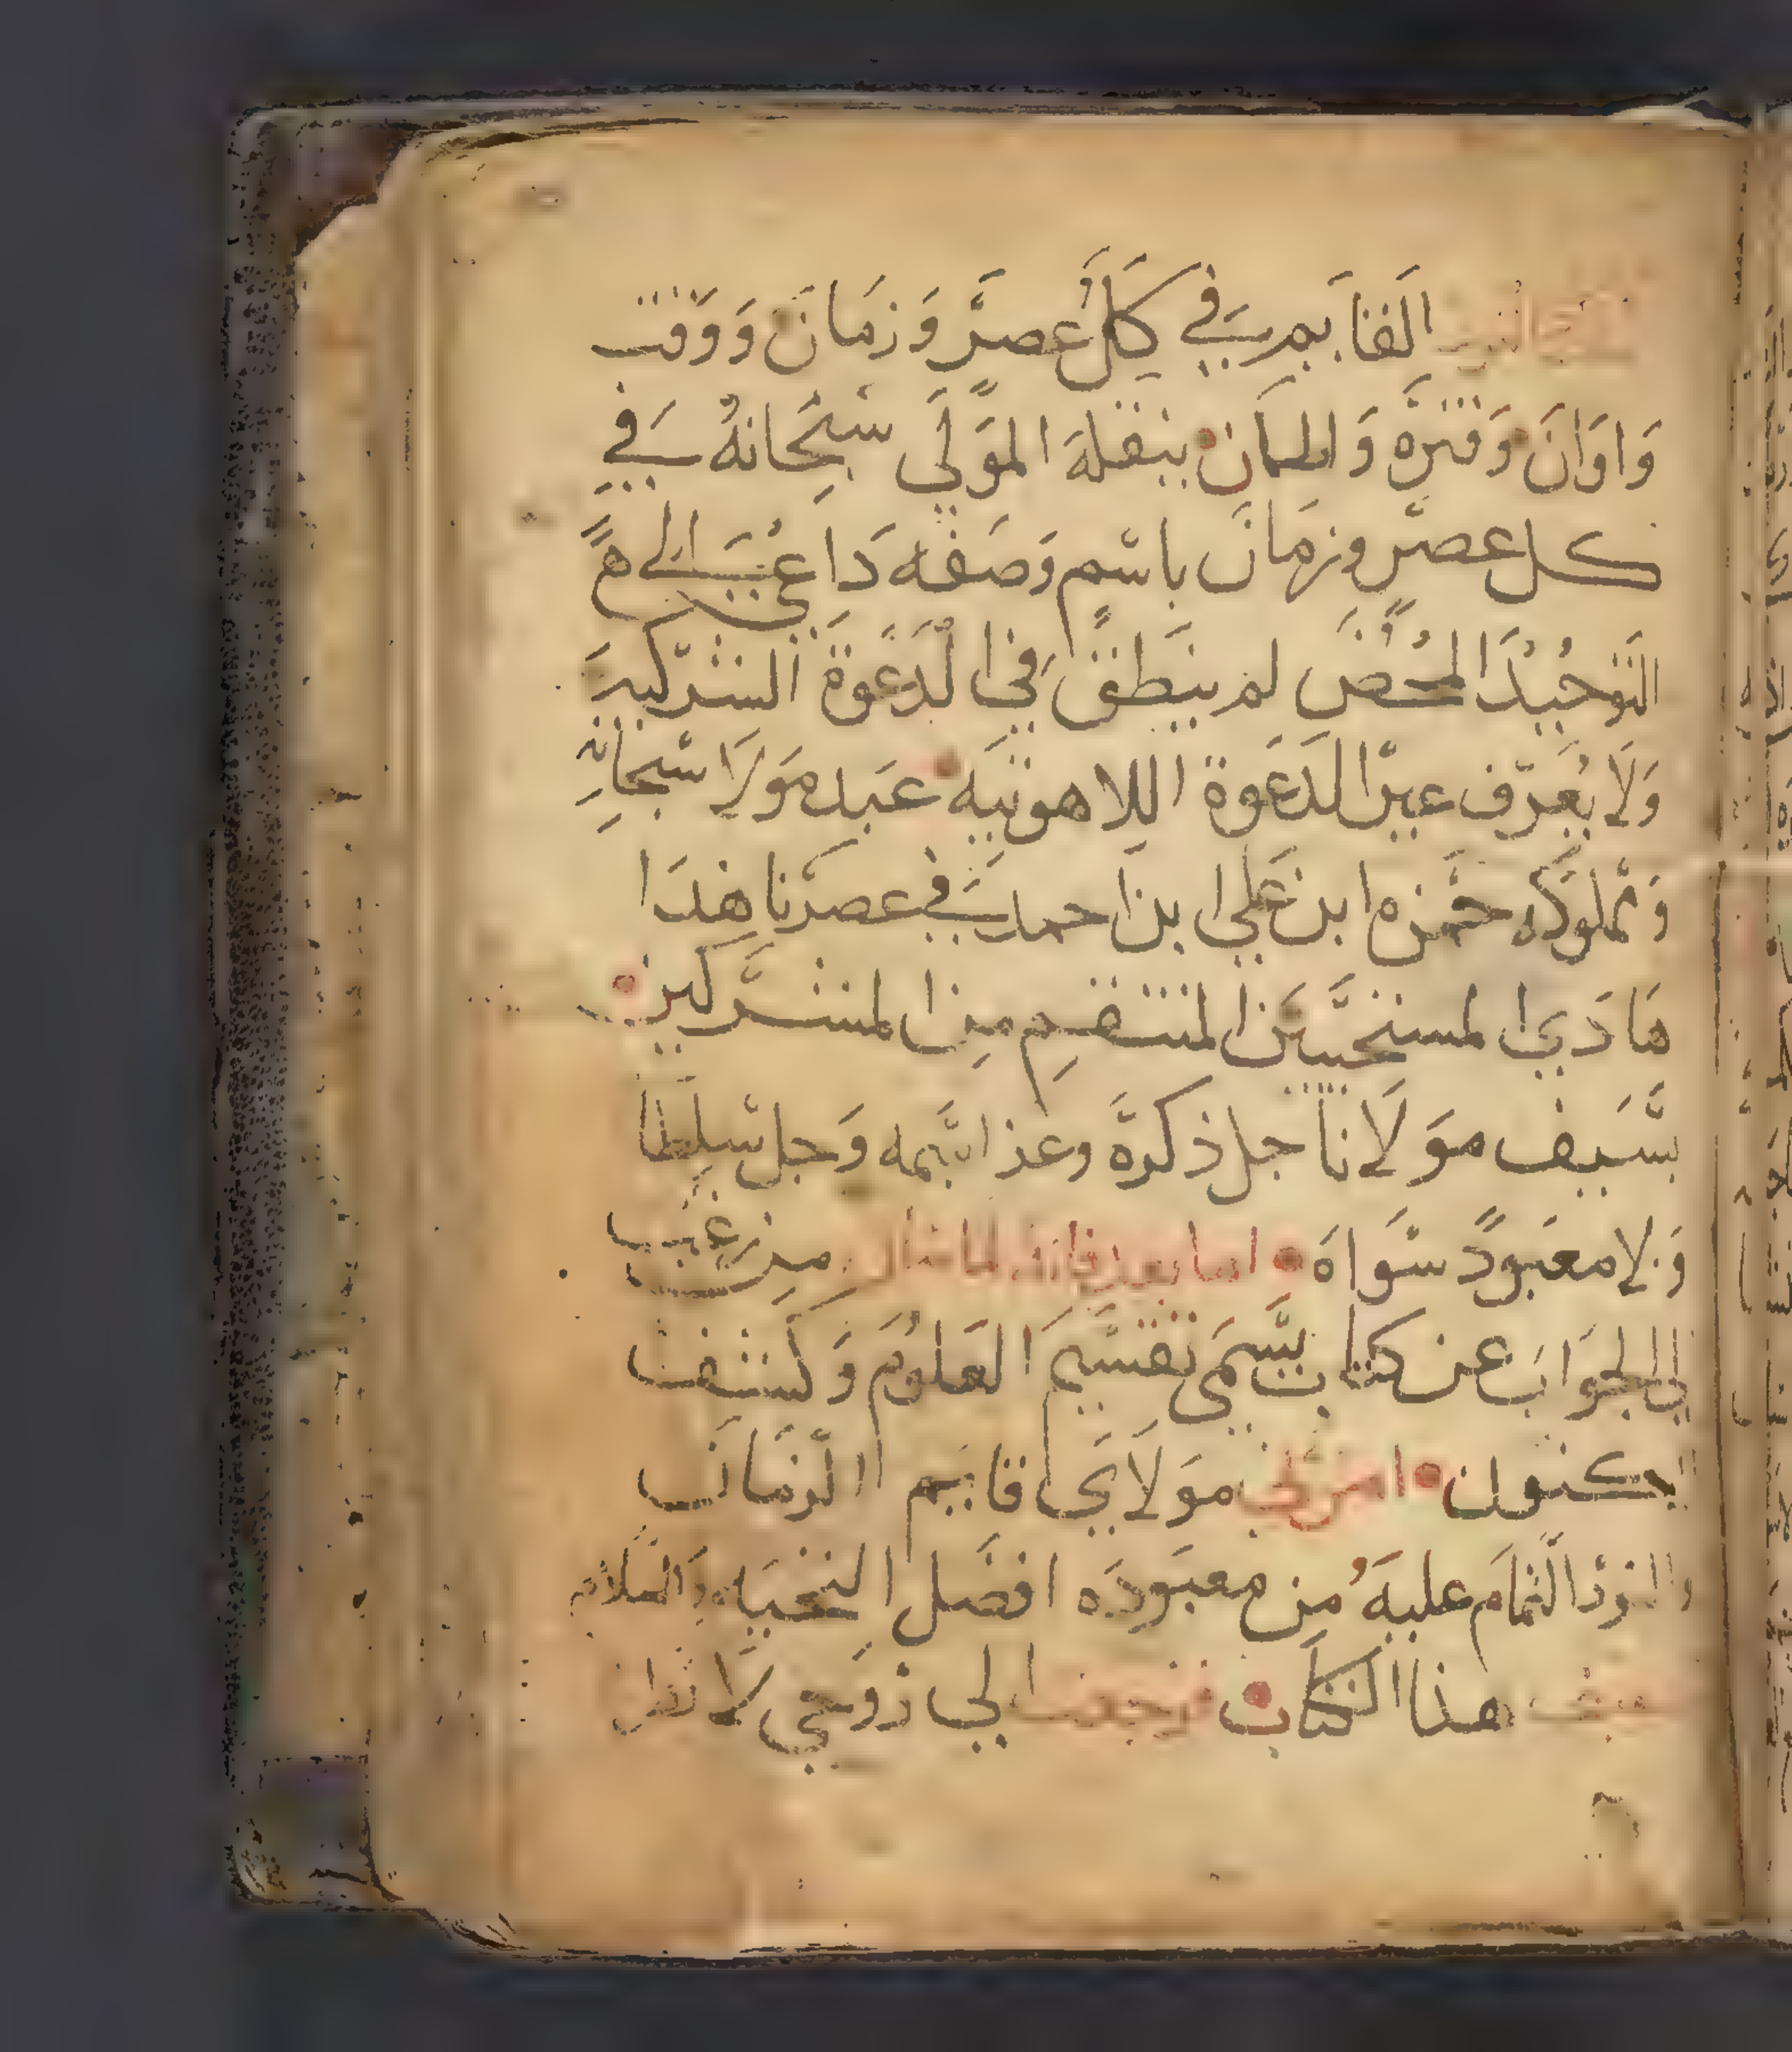 القايم في كل عصر وزمان ووقت
واوان وفتره والمكان ينقله المولي سبحانه في
كل عصر وزمان باسم وصفه داعي الي
التوحيد المحض لم ينطق في الدعوة الشركيه
ولا يعرف غير الدعوة اللاهوتيه عبد مولانا سبحانه
ومملوكه حمزه ابن علي ابن احمد في عصرنا هذا
هادي المستجيبين المنتقم من المشركين
بسيف مولانا جل ذكره وعز اسمه وجل سلطانه
ولا معبود سواه اما بعد فانك لما سالت من غيب
الي الجواب عن كتاب يسمي تقسيم العلوم وكشف
المكنون امرني مولاي قايم الزمان
والنور التمام عليه من معبوده افضل التحيه والسلام
هذا الكتاب فرجعت الي روحي لا